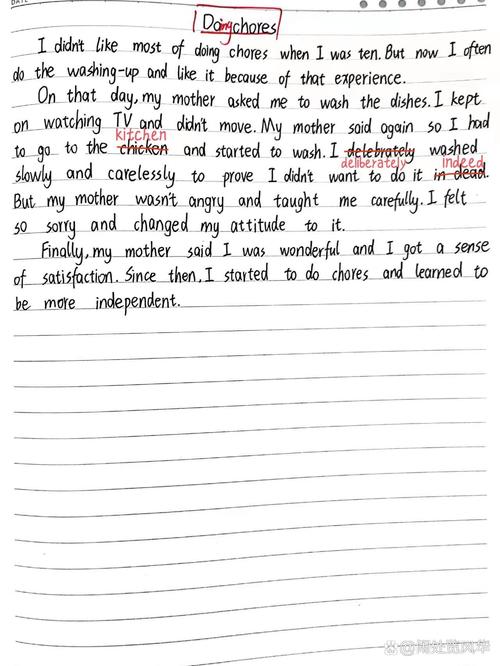 Doing chores
I didn't like most of doing chores when I was ten. But now I often
do the washing-up and like it because of that experience.
On that day, my mother asked me to wash the dishes. I kept
on watching TV and didn't move. My mother said again so I had
kitchen
to go to the chicken and started to wash. I delebrately washed
deliberately indeed
slowly and carelessly to prove I didn't want to do it in dead.
But my mother wasn't angry and taught me carefully. I felt
so sorry and changed my attitude to it.
Finally, my mother said I was wonderful and I got a sense
of satisfaction. Since then, I started to do chores and learned to
be more independent.
@闹处览风华